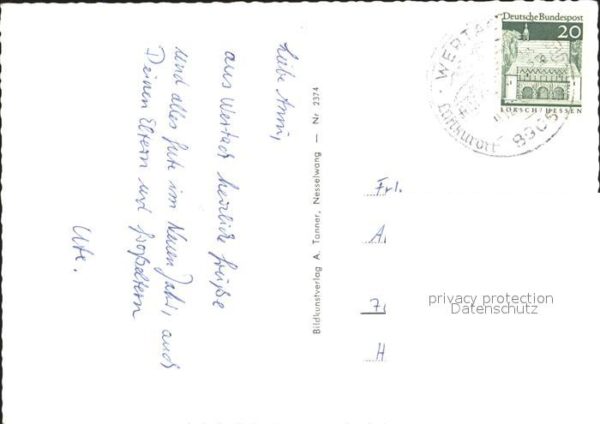 Liebe Anni,
aus Wertach herzliche Grüße
und alles Gute im Neuen Jahr, auch
Deinen Eltern und Großeltern
Ute.
Bildkunstverlag A. Tanner, Nesselwang — Nr 2374
Deutsche Bundespost
20
LORSCH/HESSEN
WERTA
Luftkurort
8965
Frl.
A.
7
H
privacy protection
Datenschutz